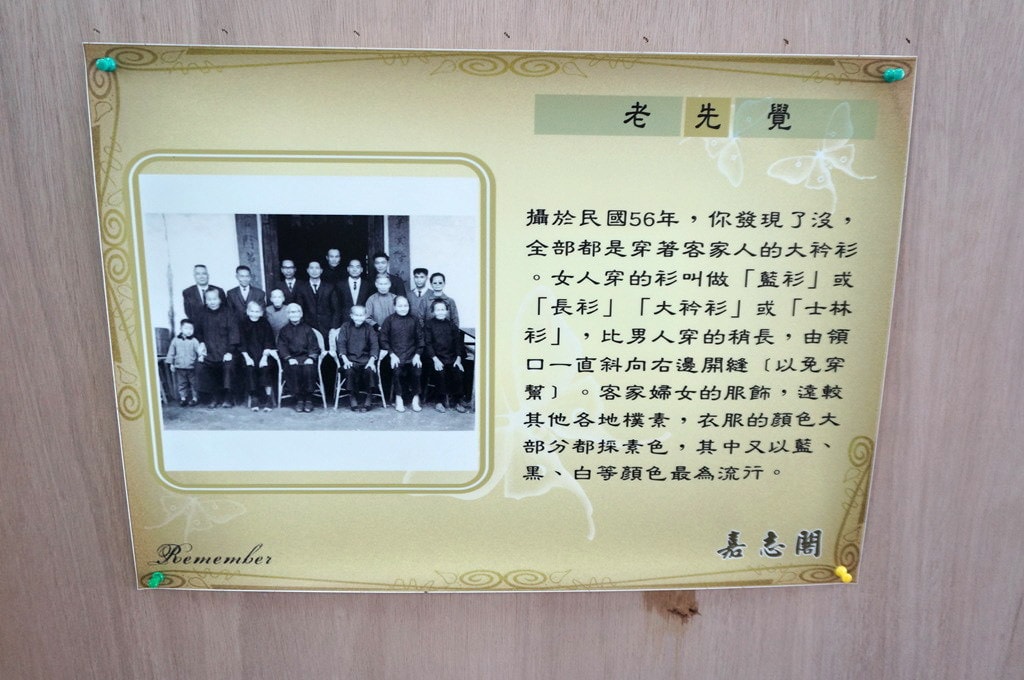 老先覺
攝於民國56年，你發現了沒，
全部都是穿著客家人的大衿衫
。女人穿的衫叫做「藍衫」或
「長衫」「大衿衫」或「士林
衫」，比男人穿的稍長，由領
口一直斜向右邊開縫〔以免穿
幫〕。客家婦女的服飾，遠較
其他各地樸素，衣服的顏色大
部分都採素色，其中又以藍、
黑、白等顏色最為流行。
Remember
嘉志閣